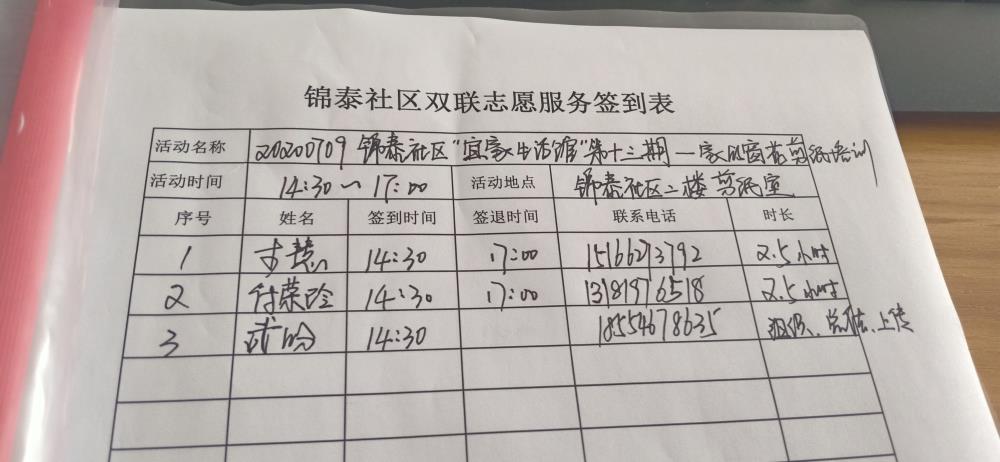 锦泰社区双联志愿服务签到表
活动名称 20200709 锦泰社区"宜家生活馆"第十三期—家风窗花剪纸培训
活动时间 14:30—17:00 活动地点 锦泰社区二楼剪纸室
序号 姓名 签到时间 签退时间 联系电话 时长
1 慧 14:30 17:00 15166273792 2.5小时
2 付荣玲 14:30 17:00 13181976518 2.5小时
3 14:30 18554678635 组织、总结、上传